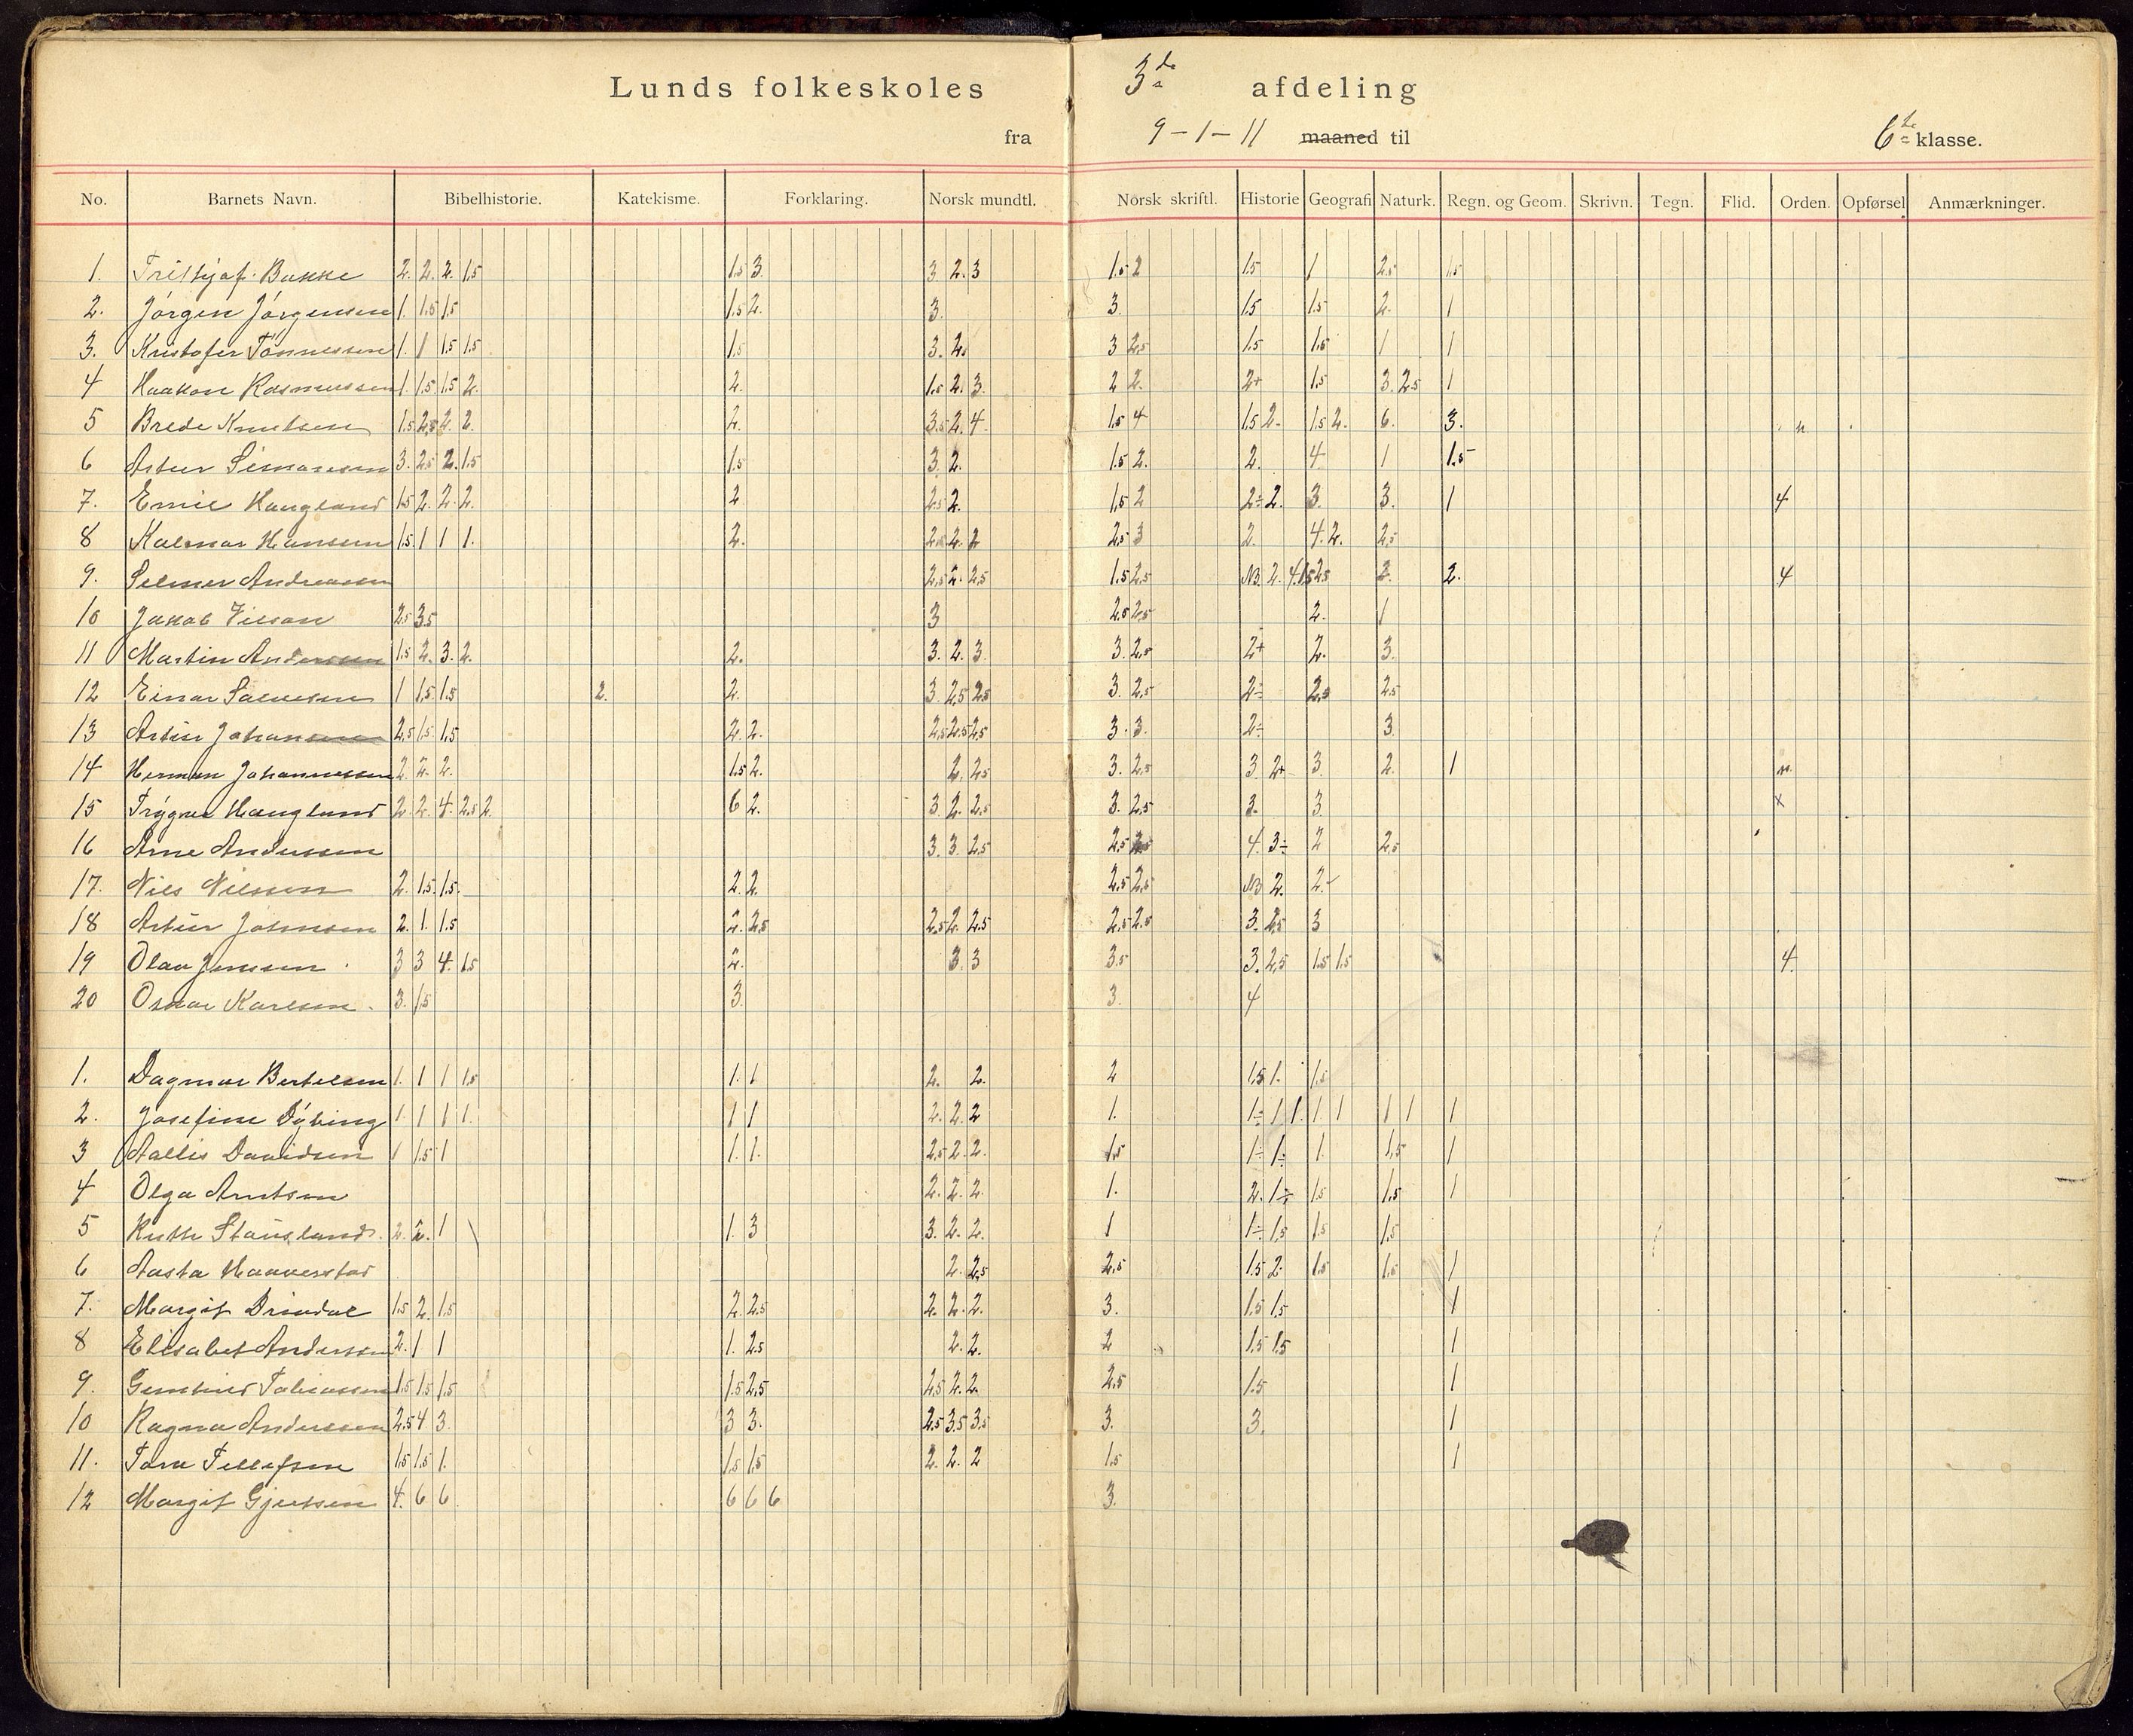 Lunds folkeskoles 3de afdeling
fra 9-1-11 maaned til 6te klasse.
No. Barnets Navn. Bibelhistorie. Katekisme. Forklaring. Norsk mundtl. Norsk skriftl. Historie Geografi Naturk. Regn. og Geom. Skrivn. Tegn. Flid. Orden. Opførsel Anmærkninger.
1. Bakke 2. 2. 2. 1.5 1.5 3. 3 2. 3 1.5 2 1.5 1 2.5 1.5
2. Jörgen Jörgensen 1. 1.5 1.5 1.5 2. 3. 3. 1.5 1.5 2. 1
3. Kristofer Tönnessen 1. 1 1.5 1.5 1.5 3. 2. 3 2.5 1.5 1.5 1 1
4 Haakon Rasmussen 1. 1.5 1.5 2. 2. 1.5 2. 3. 2 2. 2+ 1.5 3. 2.5 1
5 Brede Knutsen 1.5 2.5 2. 2. 2. 3.5 2. 4. 1.5 4 1.5 2. 1.5 2. 6. 3.
6 Artur 3. 2.5 2. 1.5 1.5 3. 2. 1.5 2. 2. 4 1 1.5
7. Emil Haugland 1.5 2. 2. 2. 2 2.5 2. 1.5 2 2÷ 2. 3. 3. 1 4
8 Kalmar Hansen 1.5 1 1 1. 2. 2.5 2. 2 2.5 3 2. 4. 2. 2.5
9. Selmer Andreassen 2.5 2. 2.5 1.5 2.5 NB. 2. 4. 1.5 2.5 2. 2. 4
10 Jakob 2.5 3.5 3 2.5 2.5 2. 1
11 Martin Anderssen 1.5 2. 3. 2. 2. 3. 2. 3. 3. 2.5 2+ 2. 3.
12 Einar Salvesen 1 1.5 1.5 2. 2. 3. 2.5 2.5 3. 2.5 2÷ 2.5 2.5
13 Artur Johansen 2.5 1.5 1.5 2. 2. 2.5 2.5 2.5 3. 3. 2÷ 3.
14 Herman Johannessen 2. 2. 2. 1.5 2. 2. 2.5 3. 2.5 3. 2+ 3. 2. 1
15 Trygve Haugland 2. 2. 4. 2.5 2. 6 2. 3. 2. 2.5 3. 2.5 3. 3. x
16 Arne Anderssen 3. 3. 2.5 2.5 4. 3÷ 2 2.5
17. Nils Nilssen 2. 1.5 1.5 2. 2. 2.5 2.5 NB 2. 2.
18 Artur Johnsen 2. 1. 1.5 2. 2.5 2.5 2. 2.5 2.5 2.5 3. 2.5 3
19 Olav Jenssen 3 3 4. 1.5 2. 3. 3 3.5 3. 2.5 1.5 1.5 4.
20 Oskar Karlsen 3. 1.5 3. 3. 4
1. Dagmar Bertelsen 1. 1 1 1.5 1. 1. 2. 2. 2 1.5 1. 1.5
2. Josefine Dybing 1. 1 1 1. 1 1 2. 2. 2 1. 1÷ 1 1. 1 1 1 1 1
3 Davidsen 1 1.5 1 1. 1. 2.5 2. 2. 1.5 1÷ 1÷ 1. 1.5 1
4 Olga Arntsen 2. 2. 2. 1. 2. 1÷ 1.5 1.5 1
5 Ruth Stausland 2. 2. 1 1. 3 3. 2. 2. 1 1÷ 1.5 1.5 1.5
6 Aasta Haaverstad 2. 2.5 2.5 1.5 2. 1.5 1.5 1
7. Margit Drivdal 1.5 2. 1.5 2. 2.5 2. 2. 2. 3. 1.5 1.5 1
8 Elisabet Anderssen 2. 1 1 1. 2.5 2. 2. 2 1.5 1.5 1
9. Tobiassen 1.5 1.5 1.5 1.5 2.5 2.5 2. 2. 2.5 1.5 1
10 Ragna Anderssen 2.5 4 3. 3 3. 2.5 3.5 3.5 3. 3. 1
11. Tora Tellefsen 1.5 1.5 1. 1.5 1.5 2. 2. 2 1.5 1
12 Margit Gjertsen 4. 6 6 6 6 6 3.